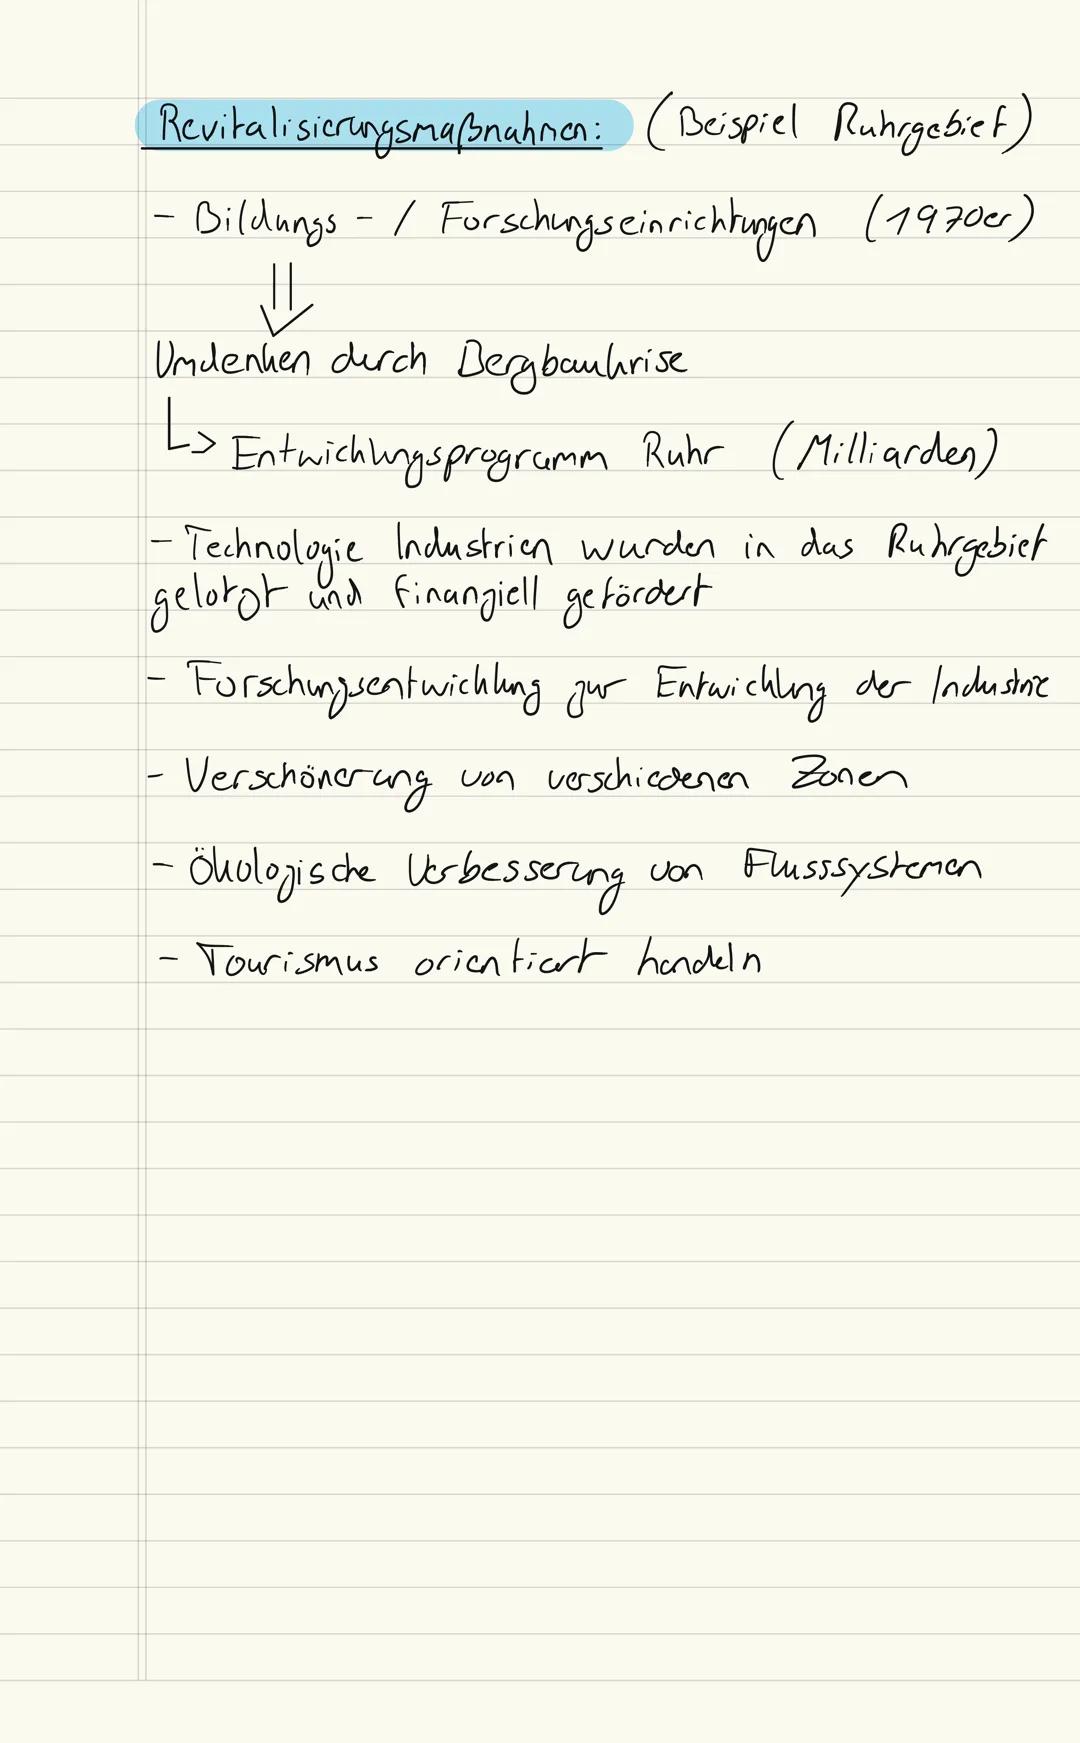 Revitalisierungsmaßnahmen: (Beispiel Ruhrgebiet)
- Bildungs - / Forschungseinrichtungen (1970er)
Umdenken durch Bergbaukrise
Entwicklungsprogramm Ruhr (Milliarden)
- Technologie Industrien wurden in das Ruhrgebiet
gelotzt und finanziell gefördert
- Forschungsentwicklung zur Entwicklung der Industrie
- Verschönerung von verschiedenen Zonen
- Ökologische Verbesserung von Flusssystemen
- Tourismus orientiert handeln